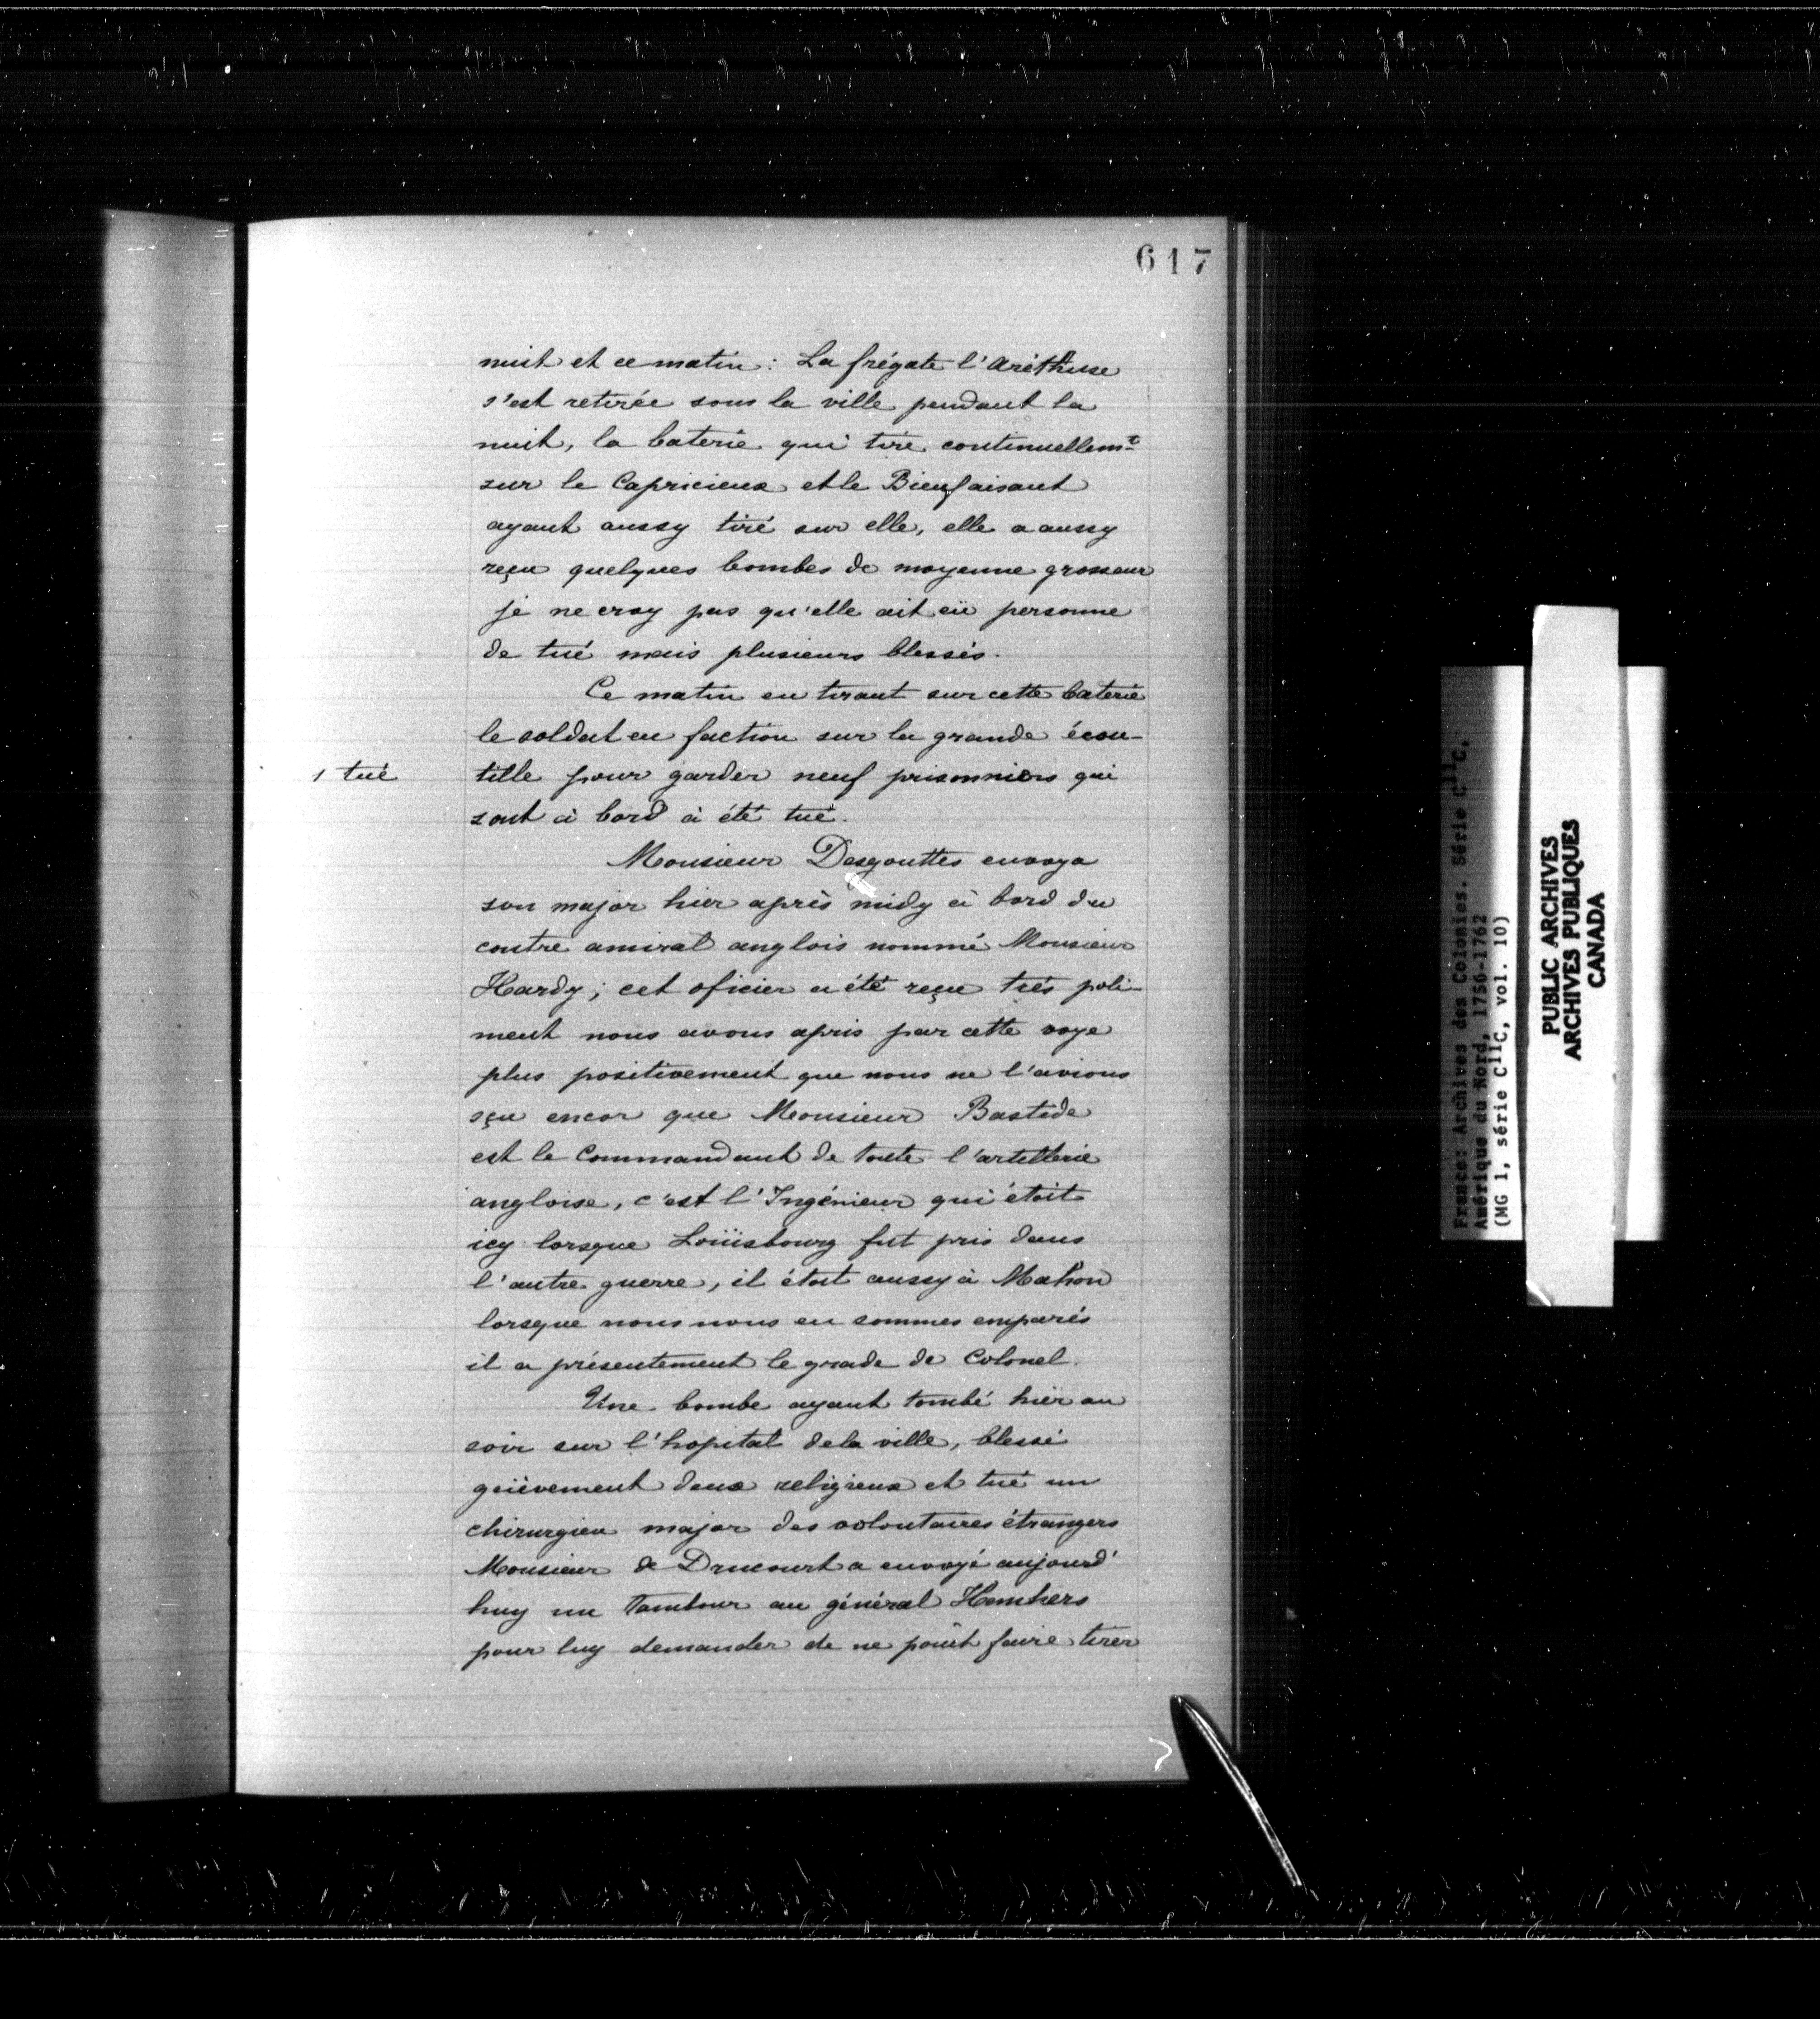 617
nuit et ce matin : La frégate l'Aréthuse
s'est retirée sous la ville pendant la
nuit, la baterie qui tire continuellemt
sur le Capricieux et le Bienfaisant
ayant aussy tiré sur elle, elle a aussy
reçu quelques bombes de moyenne grosseur
je ne croy pas qu'elle ait eü personne
de tué mais plusieurs blessés.
Ce matin en tirant sur cette baterie
le soldat en faction sur la grande écou-
1 tué
tille pour garder neuf prisonniers qui
sont à bord à été tué.
Monsieur Desgouttes envoya
son major hier après midy à bord du
contre amiral anglois nommé Monsieur
Hardy; cet oficier a été reçu très poli-
ment nous avons apris par cette voye
plus positivement que nous ne l'avions
sçu encor que Monsieur Bastide
est le Commandant de toute l'artillerie
angloise, c'est l'Ingénieur qui étoit
icy lorsque Loüisbourg fut pris dans
l'autre guerre, il étoit aussy à Mahon
lorsque nous nous en sommes emparés
il a présentement le grade de Colonel.
Une bombe ayant tombé hier au
soir sur l'hopital dela ville, blessé
grièvement deux religieux et tué un
chirurgien major des volontaires étrangers
Monsieur de Drucourt a envoyé aujourd'
huy un Tambour au général Hamhers
pour luy demander de ne point faire tirer
France: Archives des Colonies. Série C11C,
Amérique du Nord, 1756-1762
(MG 1, série C11C, vol. 10)
PUBLIC ARCHIVES
ARCHIVES PUBLIQUES
CANADA